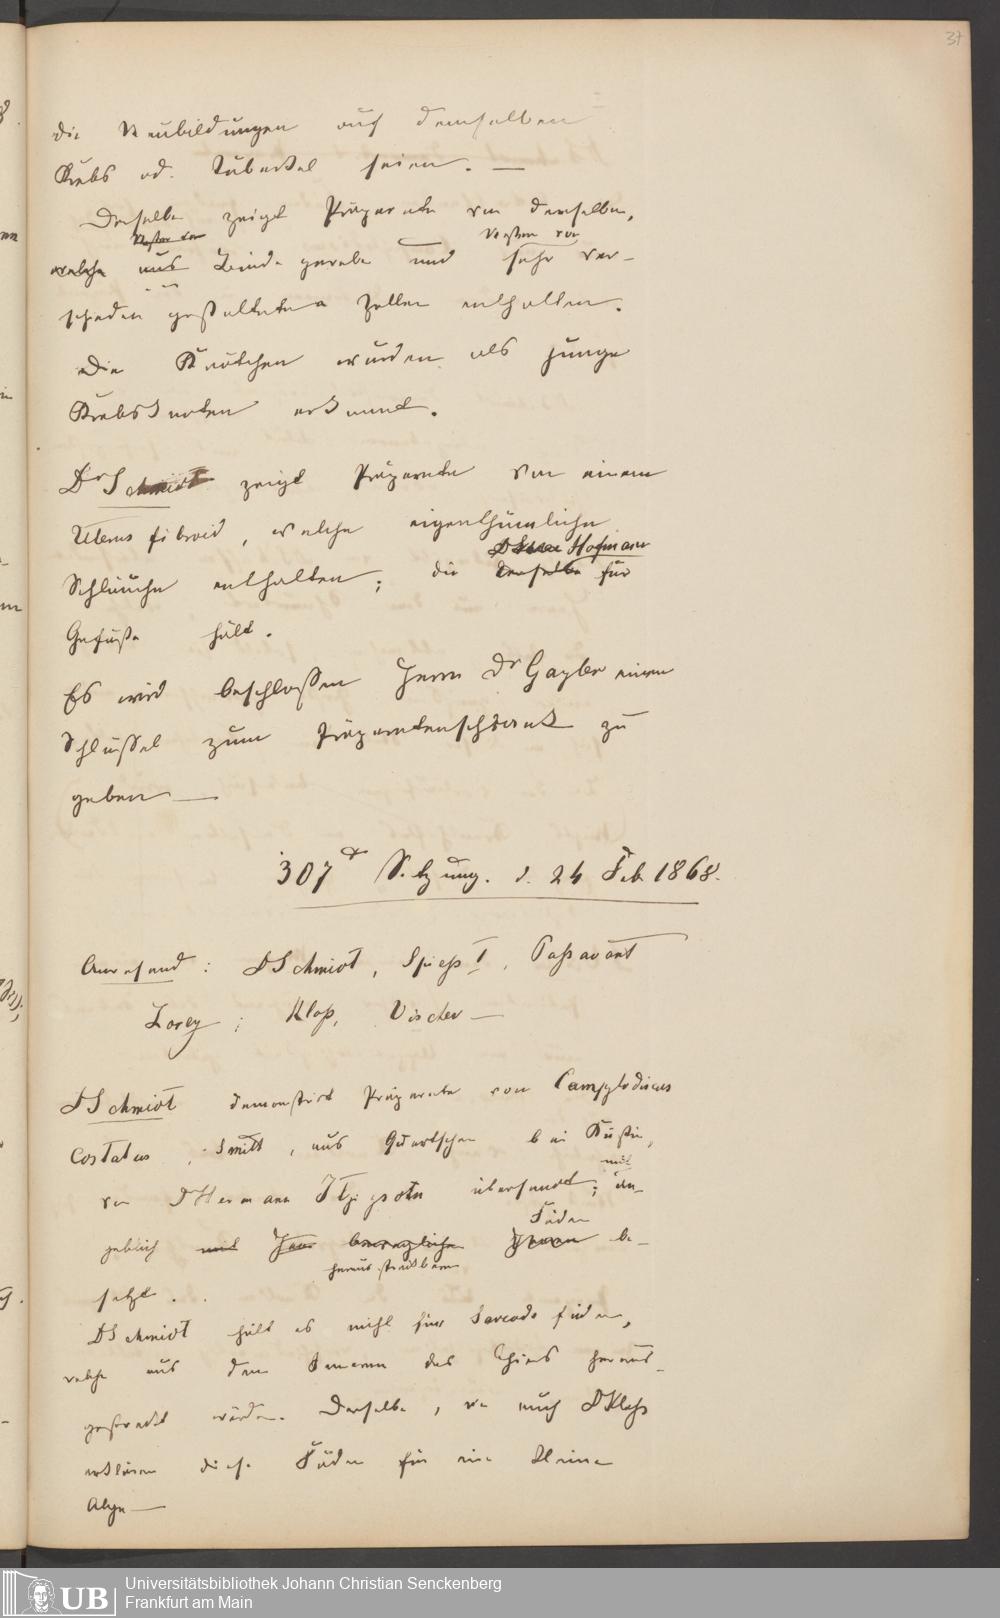 37
die Neubildungen auch demselben
Krebs od. Tuberkel seien. —
Derselbe zeigt Präparate von denselben,
welche aus Bindegewebe und sehr ver-
schieden gestalteten Zellen enthalten.
Die Knötchen wurden als junge
Krebsknoten erkannt.
Dr Schmidt zeigt Präparate von einem
Uterus fibroid, welche eigenthümliche
Hofmann
Schläuche enthalten; die derselbe für
Gefäße hält.
Es wird beschlossen Herrn Dr Gayler einen
Schlüssel zum Präparatenschrank zu
geben —
307te Sitzung. d. 24 Feb 1868.
Anwesend: D Schmidt, Spieß I, Passavant
Lorey; Kloß, Vischer —
D Schmidt demonstrirt Präparate von Campylodiscus
Costatus, Smith, aus bei
mit
von D Hermann übersandt; an-
Fäden
geblich mit bewegliche be-
herausstreckbaren
setzt.
D Schmidt hält es nicht für Sarcode fäden,
welche aus dem Inneren des Thiers heraus-
gestreckt würden. Derselbe, wie auch D Kloß
erklären diese Fäden für eine kleine
Alge —
UB
Universitätsbibliothek Johann Christian Senckenberg
Frankfurt am Main